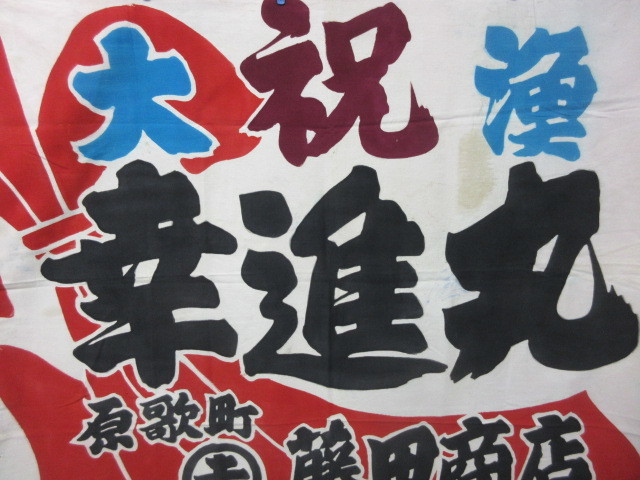 大祝漁
幸進丸
原歌町
藤田商店